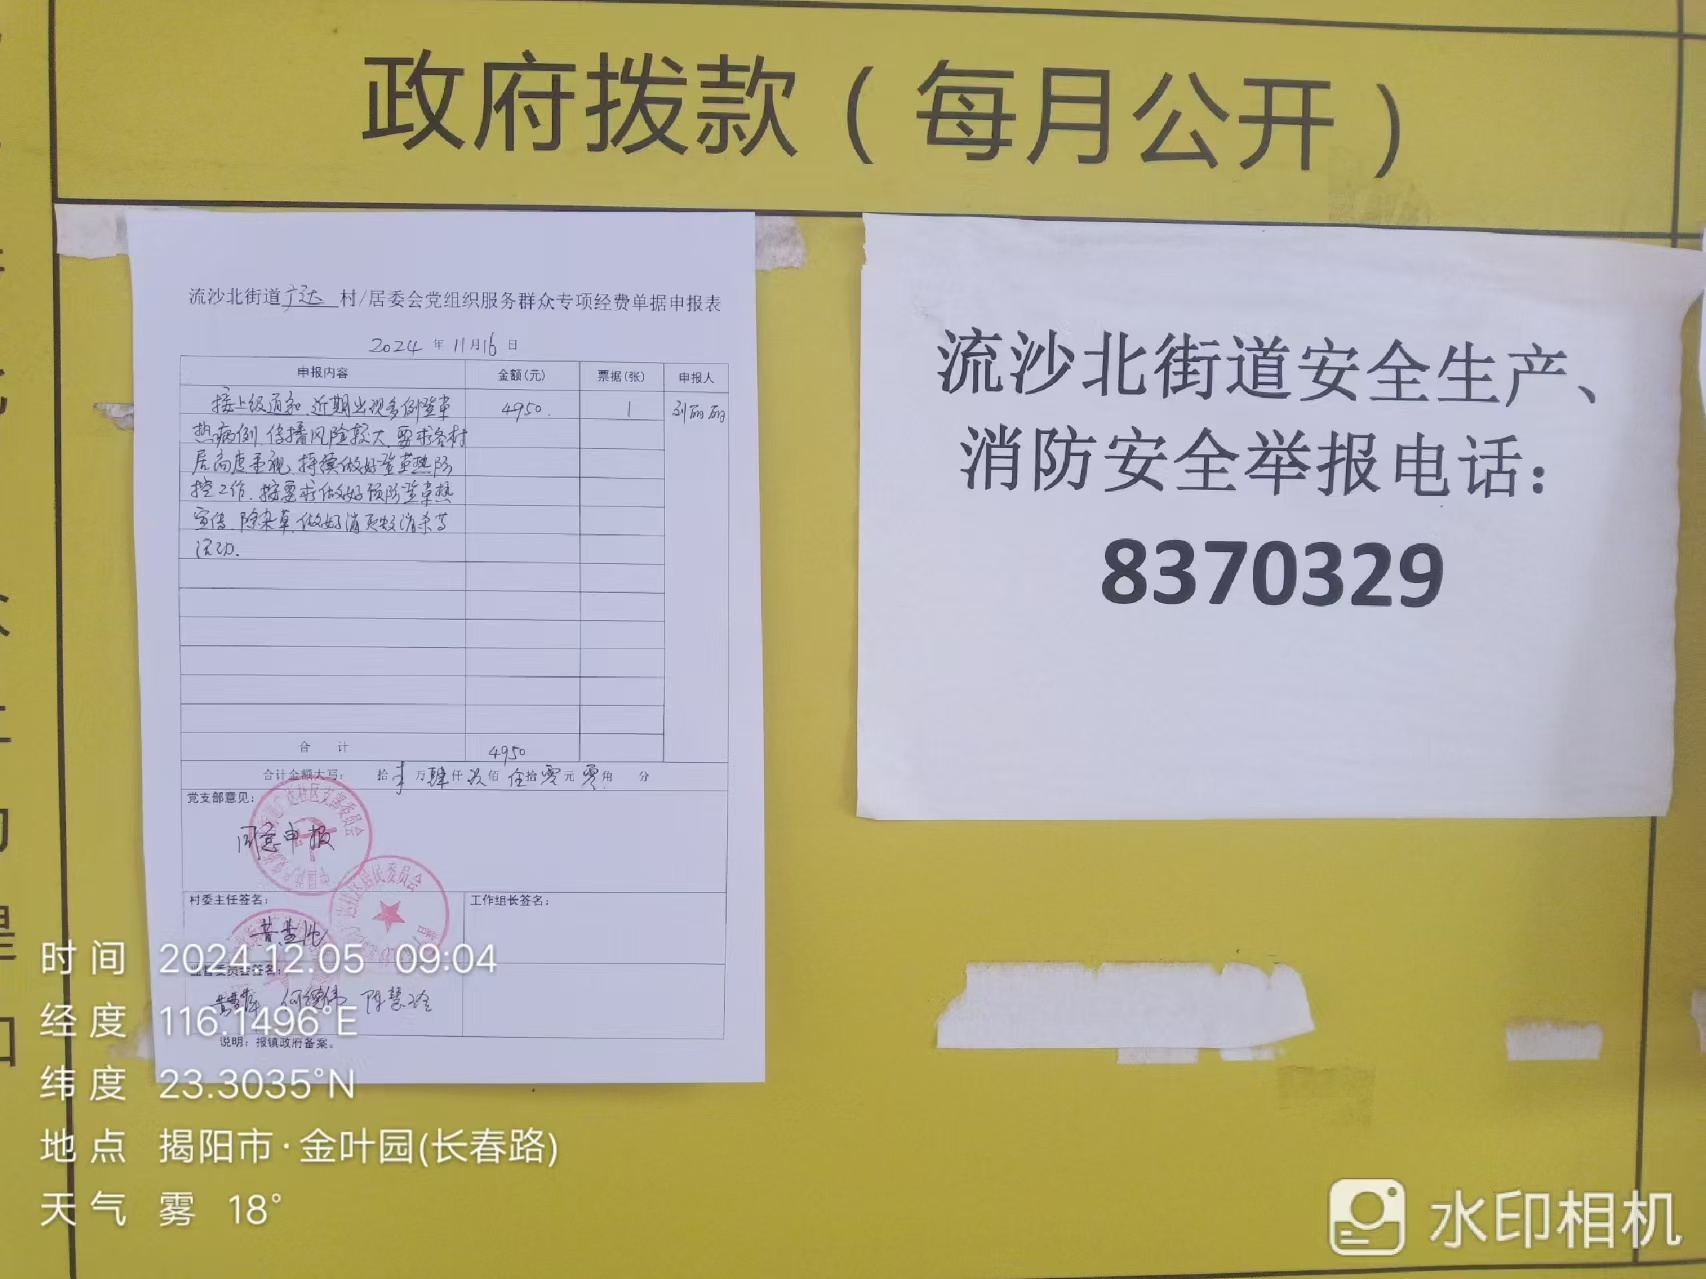 政府拨款（每月公开）
流沙北街道广达村/居委会党组织服务群众专项经费单据申报表
2024年11月16日
申报内容 金额(元) 票据(张) 申报人
接上级通知,近期出现多例登革 4950. 1 刘丽丽
热病例,传播风险较大,要求各村
居高度重视,持续做好登革热防
控工作,按要求做好预防登革热
宣传,除杂草,做好消灭蚊消杀等
活动.
合计 4950
合计金额大写： 拾 万肆仟玖佰伍拾零元零角 分
党支部意见：
同意申报
村委主任签名： 工作组长签名：
监督委员会签名：
何继伟 陈慧玲
说明：报镇政府备案。
流沙北街道安全生产、
消防安全举报电话：
8370329
时间 2024.12.05 09:04
经度 116.1496°E
纬度 23.3035°N
地点 揭阳市·金叶园(长春路)
天气 雾 18°
水印相机